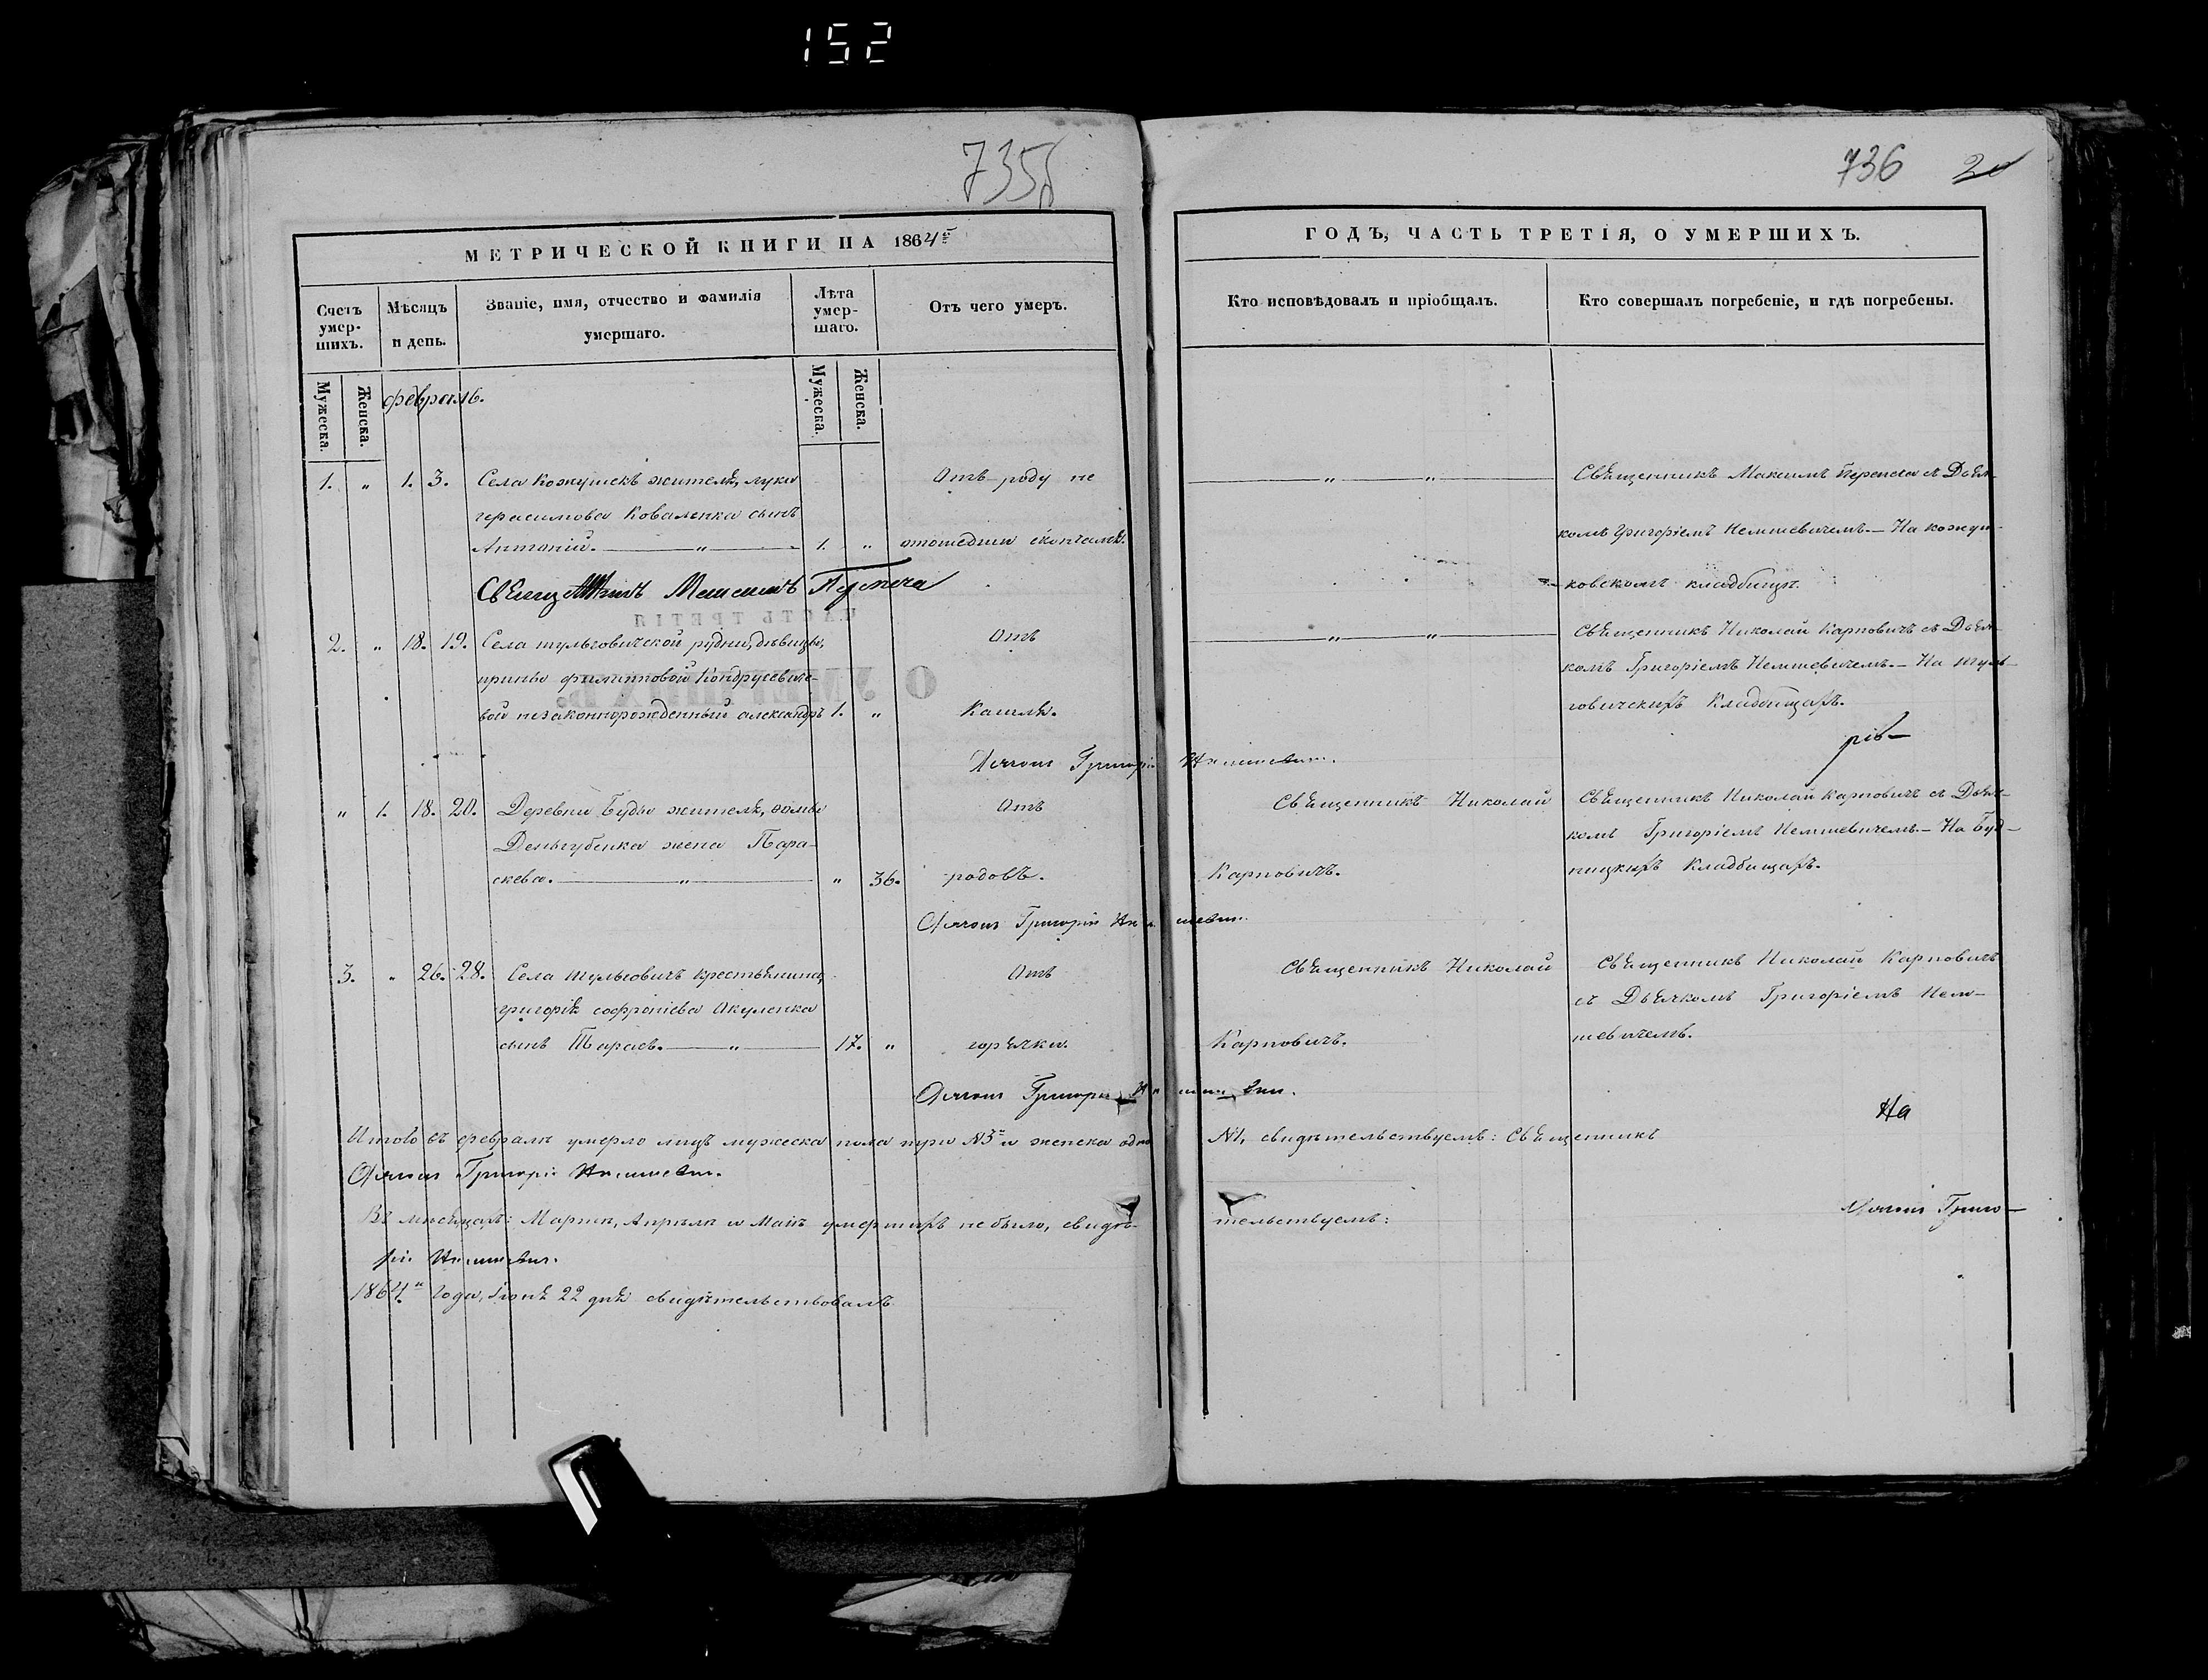 152
735
736 20
МЕТРИЧЕСКОЙ КНИГИ НА 1864й
ГОДЪ, ЧАСТЬ ТРЕТІЯ, О УМЕРШИХЪ.
Счетъ умер- шихъ.
Мѣсяцъ и день.
Званіе, имя, отчество и фамилія умершаго.
Лѣта умер- шаго.
Отъ чего умеръ.
Кто исповѣдовалъ и пріобщалъ.
Кто совершалъ погребеніе, и гдѣ погребены.
Мужеска. Женска.
Февраль.
Мужеска. Женска.
1. „ 1. 3. Села Кожушекъ жителя, луки Отъ роду не „ „ Священникъ Максимъ съ Дьяч-
герасимова Коваленка сынъ
Антоній. „ 1. „
комъ Григоріемъ Немшевичемъ.— На кожуш-
Священникъ Максимъ
ковскомъ кладбищѣ.
2. „ 18. 19. Села тульговичской рудни, дѣвицы, Отъ „ „ Священникъ Николай Карповичъ съ Дьяч-
ирины филипповой Кондрусевиче-
комъ Григоріемъ Немшевичемъ.— На туль-
вой незаконнорожденный александръ 1. „ Кашля.
говичскихъ Кладбищахъ.
Дьячокъ Григорій Немшевичъ.
„ 1. 18. 20. Деревни Буды жителя, фомы Отъ Священникъ Николай Священникъ Николай Карповичъ съ Дьяч-
жена Пара-
комъ Григоріемъ Немшевичемъ.— На Буд-
скева. „ „ 36. родовъ. Карповичъ.
ницкихъ Кладбищахъ.
Дьячокъ Григорій Немшевичъ.
3. „ 26. 28. Села тульговичъ крестьянина, Отъ Священникъ Николай Священникъ Николай Карповичъ
григорія софроніева Акуленка
съ Дьячкомъ Григоріемъ Нем-
сынъ Тарасъ. „ 17. „ горячки. Карповичъ.
шевичемъ.
Дьячокъ Григорій Немшевичъ.
Итого въ февралѣ умерло лицъ мужеска пола три №3й и женска одно №1, свидѣтельствуемъ: Священникъ
Дьячокъ Григорій Немшевичъ.
Въ мѣсяцахъ: Мартѣ, Апрѣлѣ и Маѣ умершихъ не было, свидѣ- тельствуемъ:
Дьячокъ Григо-
рій Немшевичъ.
1864го Года, Іюня 22 дня свидѣтельствовалъ